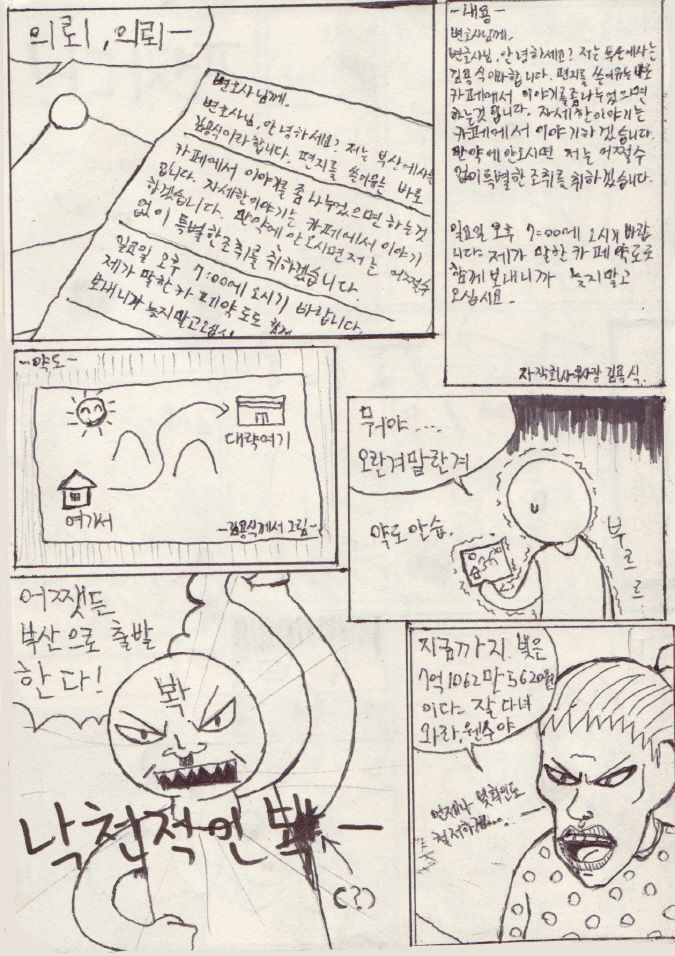 의뢰, 의뢰-
변호사님께.
변호사님, 안녕하세요? 저는 부산에사는
김용식이라합니다. 편지를 쓴이유는 바로
카페에서 이야기를 좀 나누었으면 하는것
입니다. 자세한이야기는 카페에서 이야기
하겠습니다. 만약에 안오시면 저는 어쩔수
없이 특별한조취를 취하겠습니다.
일요일 오후 7:00에 오시기 바랍니다.
제가 말한 카페약도도 함께
보내니까 늦지말고
-내용-
변호사님께.
변호사님, 안녕하세요? 저는 부산에사는
김용식이라합니다. 편지를 쓴이유는 바로
카페에서 이야기를좀나누었으면
하는것 입니다. 자세한이야기는
카페에서 이야기하겠습니다.
만약에안오시면 저는 어쩔수
없이특별한조취를 취하겠습니다.
일요일 오후 7:00에 오시기 바랍
니다. 제가 말한 카페 약도도
함께 보내니까 늦지말고
오십시요.
김용식.
-약도-
대략여기
여기서
-김용식께서 그림-
뭐야....
오란겨말란겨
약도 안습.
부르르
어쨋든
부산으로 출발
한다!
봑
낙천적인
(?)
지금까지 빚은
7억1062만5620원
이다- 잘 다녀
와라, 웬수야
언제나 빚확인도
철저하게....